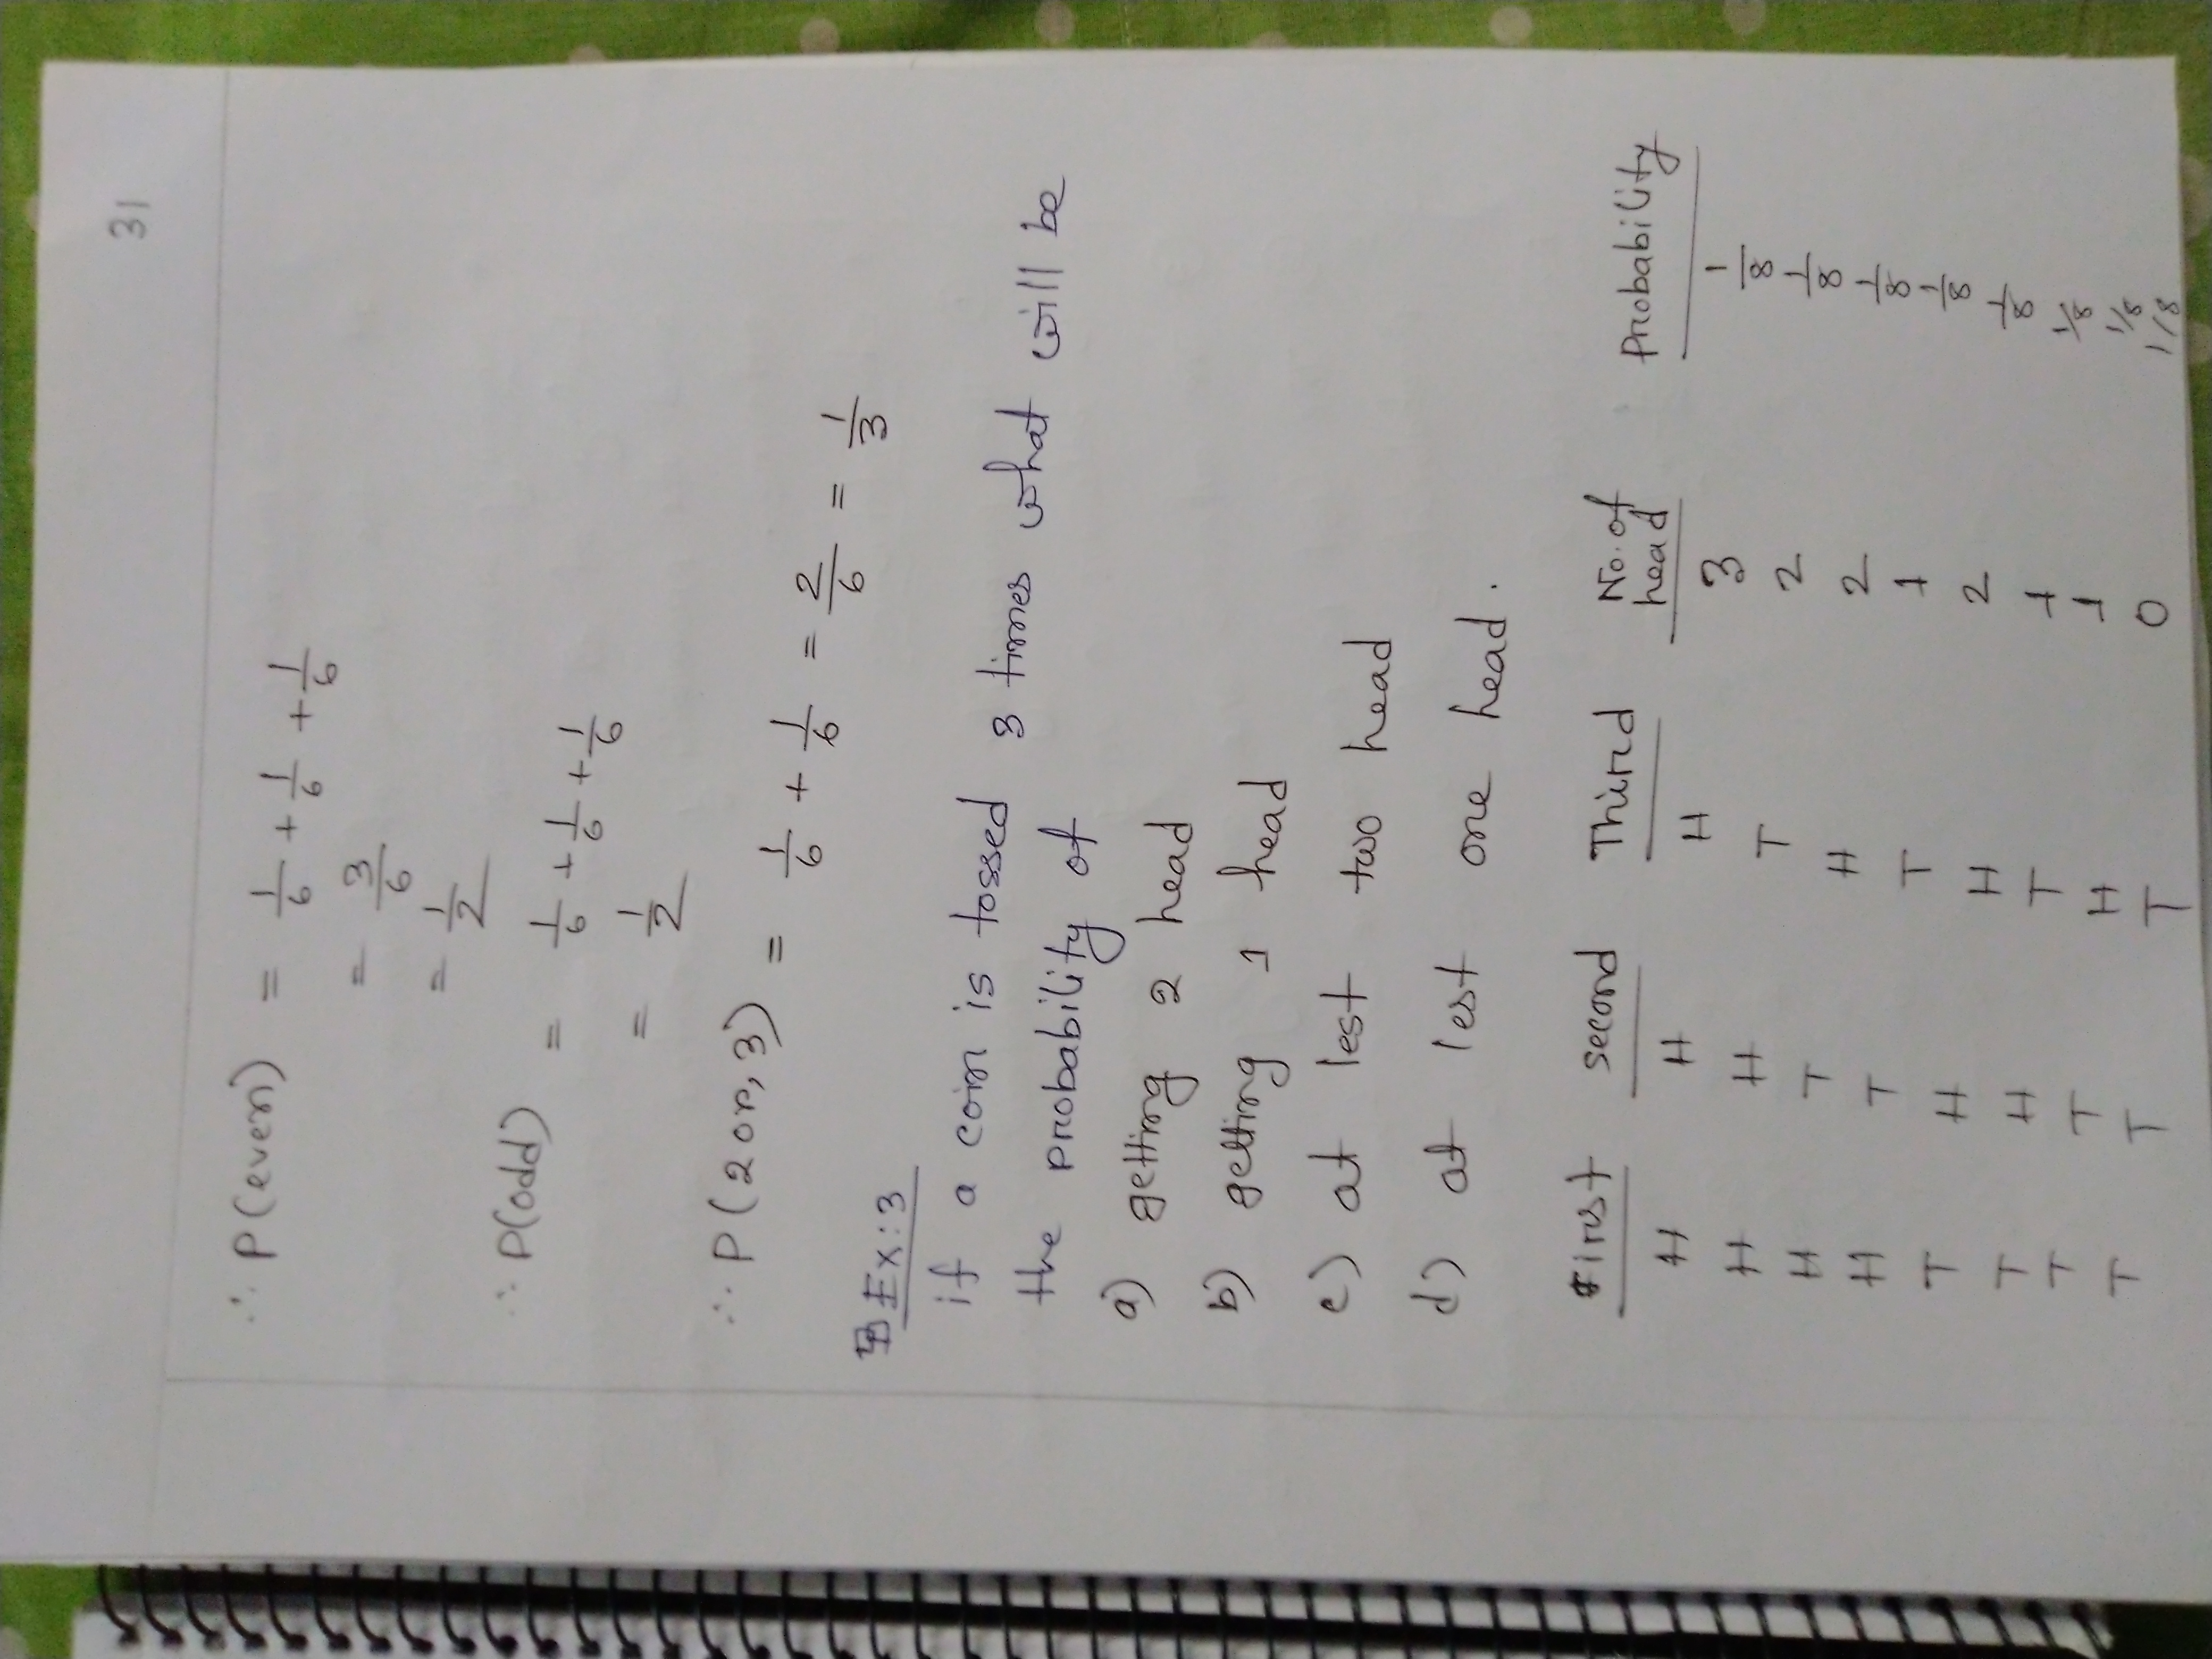 31
∴ P(even) = 1/6 + 1/6 + 1/6
= 3/6
= 1/2
∴ P(odd) = 1/6 + 1/6 + 1/6
= 1/2
∴ P(2 or, 3) = 1/6 + 1/6 = 2/6 = 1/3
Ex:3
if a coin is tossed 3 times what will be
the probability of
a) getting 2 head
b) getting 1 head
c) at lest two head
d) at lest one head.
First Second Third No. of head Probability
H H H 3 1/8
H H T 2 1/8
H T H 2 1/8
H T T 1 1/8
T H H 2 1/8
T H T 1 1/8
T T H 1 1/8
T T T 0 1/8